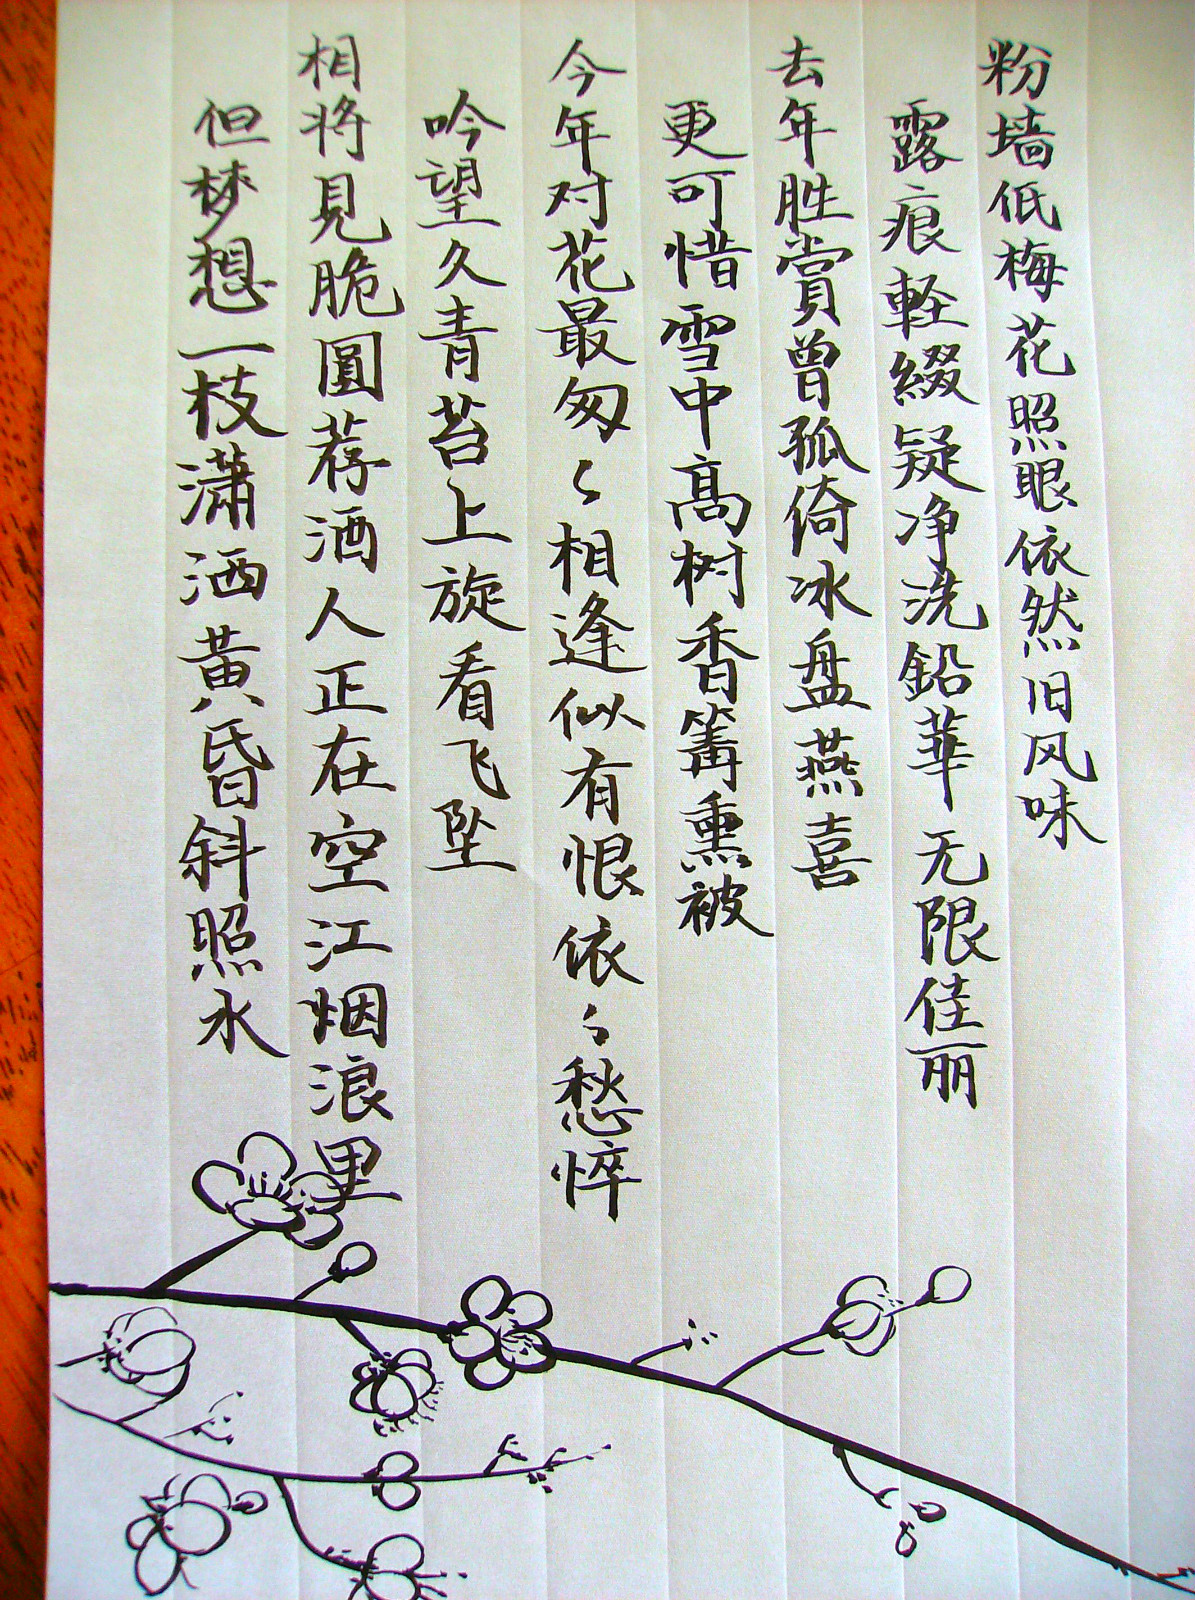 粉墙低梅花照眼依然旧风味
露痕軽綴疑净洗鉛華无限佳丽
去年胜賞曾孤倚冰盘燕喜
更可惜雪中高树香篝熏被
今年对花最匆々相逢似有恨依々愁悴
吟望久青苔上旋看飞坠
相将見脆圓荐酒人正在空江烟浪里
但梦想一枝瀟洒黄昏斜照水